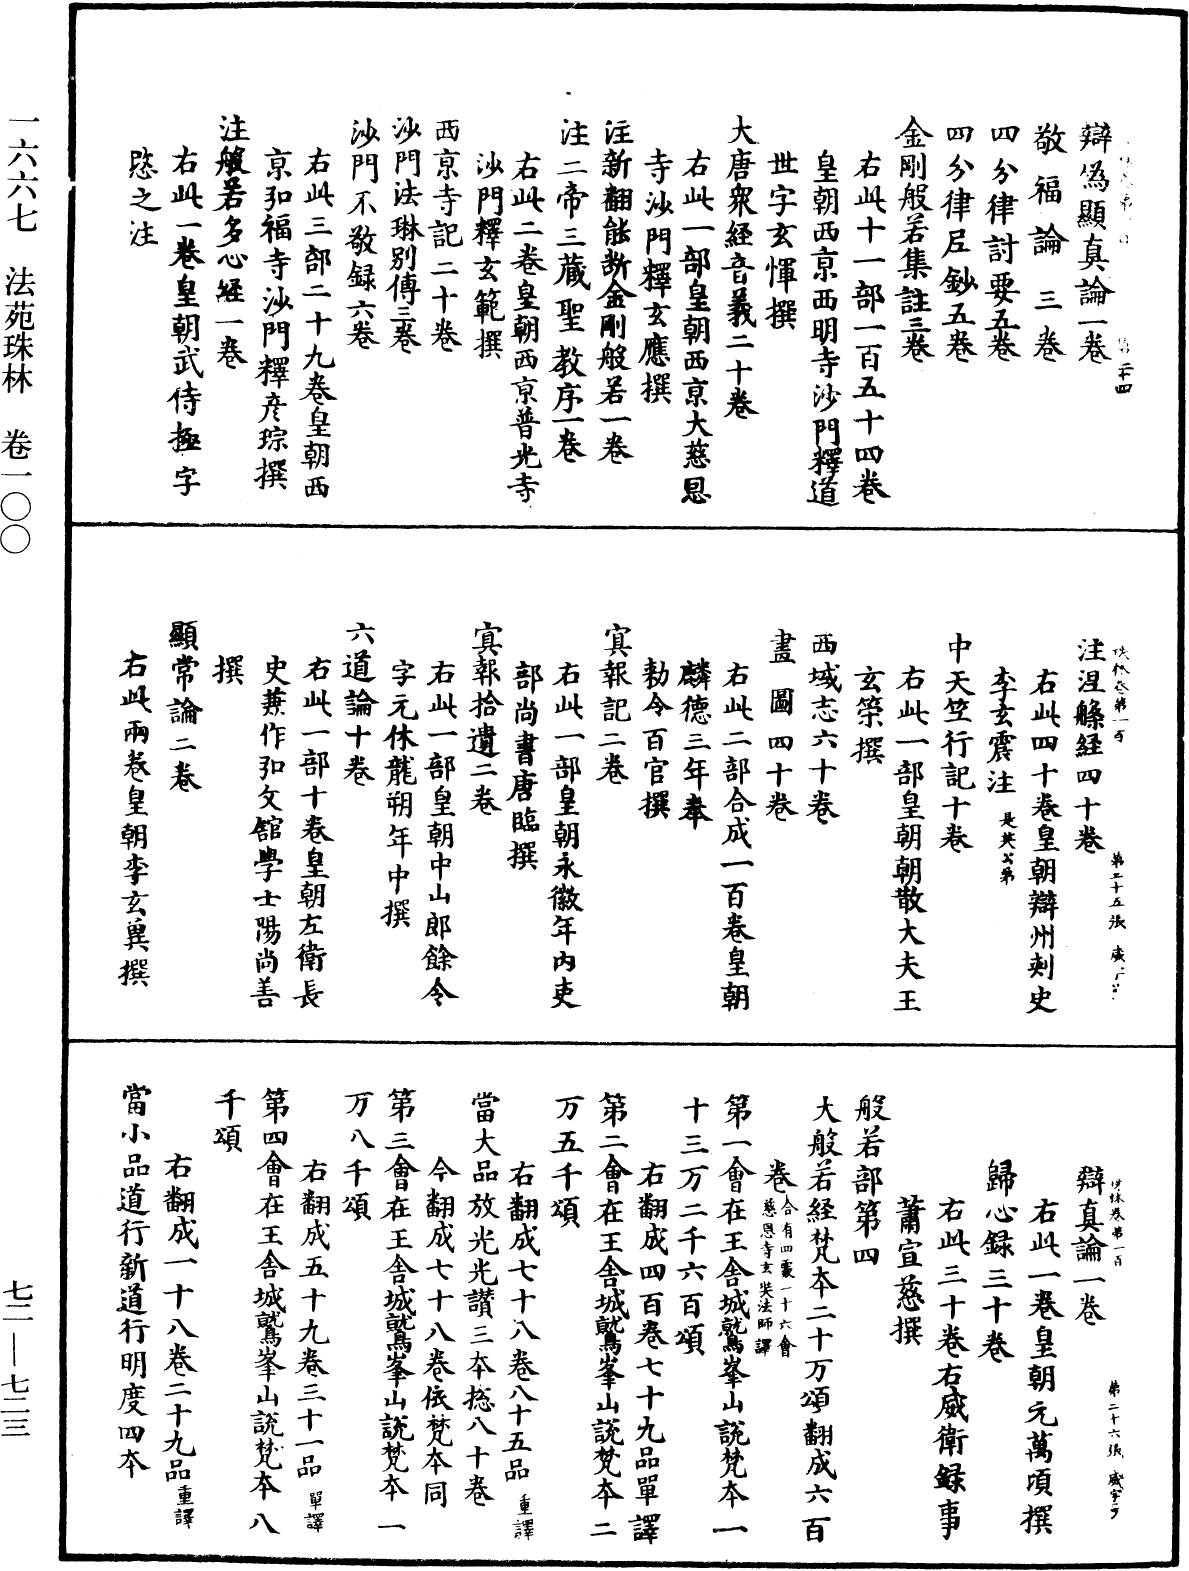 辯偽顯真論一卷
敬福論三卷
四分律討要五卷
四分律尼鈔五卷
金剛般若集註三卷
右此十一部一百五十四卷
皇朝西京西明寺沙門釋道
世字玄惲撰
大唐衆經音義二十卷
右此一部皇朝西京大慈恩
寺沙門釋玄應撰
注新翻能斷金剛般若一卷
注二帝三藏聖教序一卷
右此二卷皇朝西京普光寺
沙門釋玄範撰
西京寺記二十卷
沙門法琳別傳三卷
沙門不敬録六卷
右此三部二十九卷皇朝西
京弘福寺沙門釋彦琮撰
注般若多心經一卷
右此一卷皇朝武侍極字
愍之注
珠林卷第一百 第二十五張
注涅槃経四十卷
右此四十卷皇朝辯州刺史
李玄震注 是英公弟
中天竺行記十卷
右此一部皇朝朝散大夫王
玄策撰
西域志六十卷
畫圖四十卷
右此二部合成一百卷皇朝
麟德三年奉
勑令百官撰
冥報記二卷
右此一部皇朝永徽年内吏
部尚書唐臨撰
冥報拾遺二卷
右此一部皇朝中山郎餘令
字元休龍朔年中撰
六道論十卷
右此一部十卷皇朝左衛長
史兼作弘文舘學士陽尚善
撰
顯常論二卷
右此兩卷皇朝李玄冀撰
珠林卷第一百 第二十六張
辯真論一卷
右此一卷皇朝元萬頃撰
歸心録三十卷
右此三十卷右威衛録事
蕭宣慈撰
般若部第四
大般若経梵本二十万頌翻成六百
卷 合有四處一十六會
慈恩寺玄奘法師譯
第一會在王舍城鷲峯山説梵本一
十三万二千六百頌
右翻成四百卷七十九品單譯
第二會在王舍城鷲峯山説梵本二
万五千頌
右翻成七十八卷八十五品 重譯
當大品放光光讃三本揔八十卷
今翻成七十八卷依梵本同
第三會在王舍城鷲峯山説梵本一
万八千頌
右翻成五十九卷三十一品 單譯
第四會在王舍城鷲峯山説梵本八
千頌
右翻成一十八卷二十九品 重譯
當小品道行新道行明度四本
一六六七 法苑珠林 卷一〇〇
七二—七二三